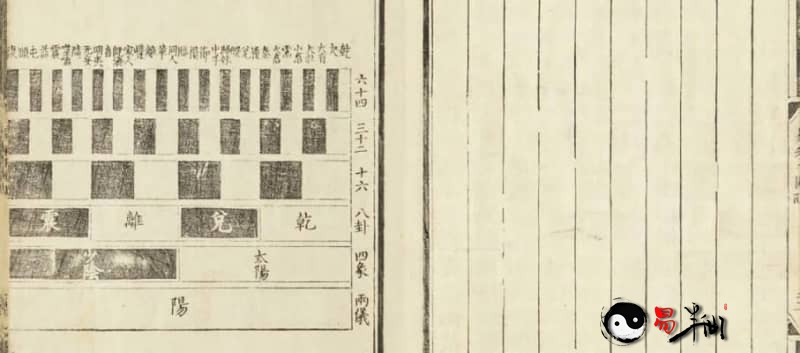 乾 夬 大有 大壯 小畜 需 大畜 泰 履 兌 睽 歸妹 中孚 節 損 臨 同人 革 離 豐 家人 既濟 賁 明夷 无妄 隨 噬嗑 震 益 屯 頤 復
六十四
三十二
十六
八卦
乾 兌 離 震
四象
太陽 少陰
兩儀
陽
易半仙